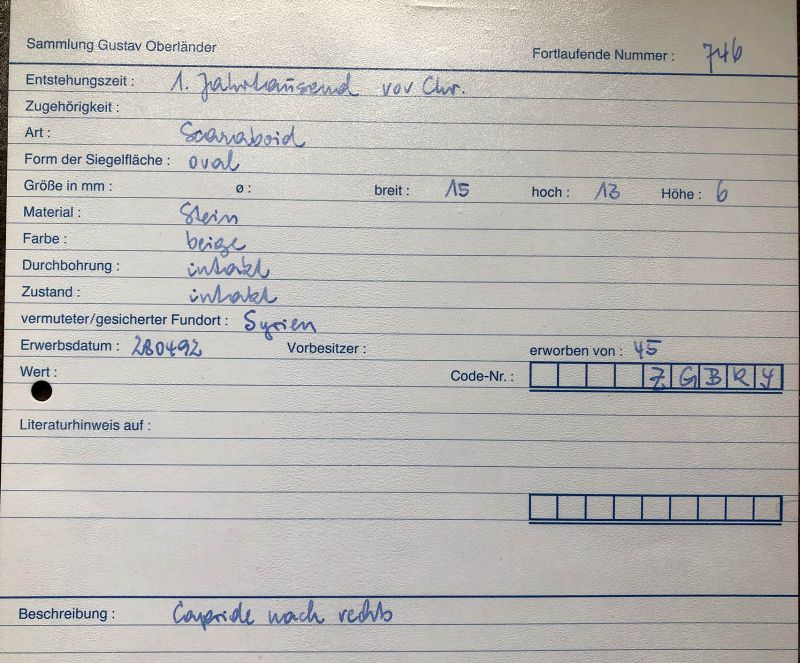 Sammlung Gustav Oberländer
Fortlaufende Nummer : 746
Entstehungszeit : 1. Jahrhausend vor Chr.
Zugehörigkeit :
Art : Scaraboid
Form der Siegelfläche : oval
Größe in mm : ø : breit : 15 hoch : 13 Höhe : 6
Material : Stein
Farbe : beige
Durchbohrung : intakt
Zustand : intakt
vermuteter/gesicherter Fundort : Syrien
Erwerbsdatum : 280492 Vorbesitzer : erworben von : 45
Wert : Code-Nr. : Z G B R Y
Literaturhinweis auf :
Beschreibung : Capride nach rechts